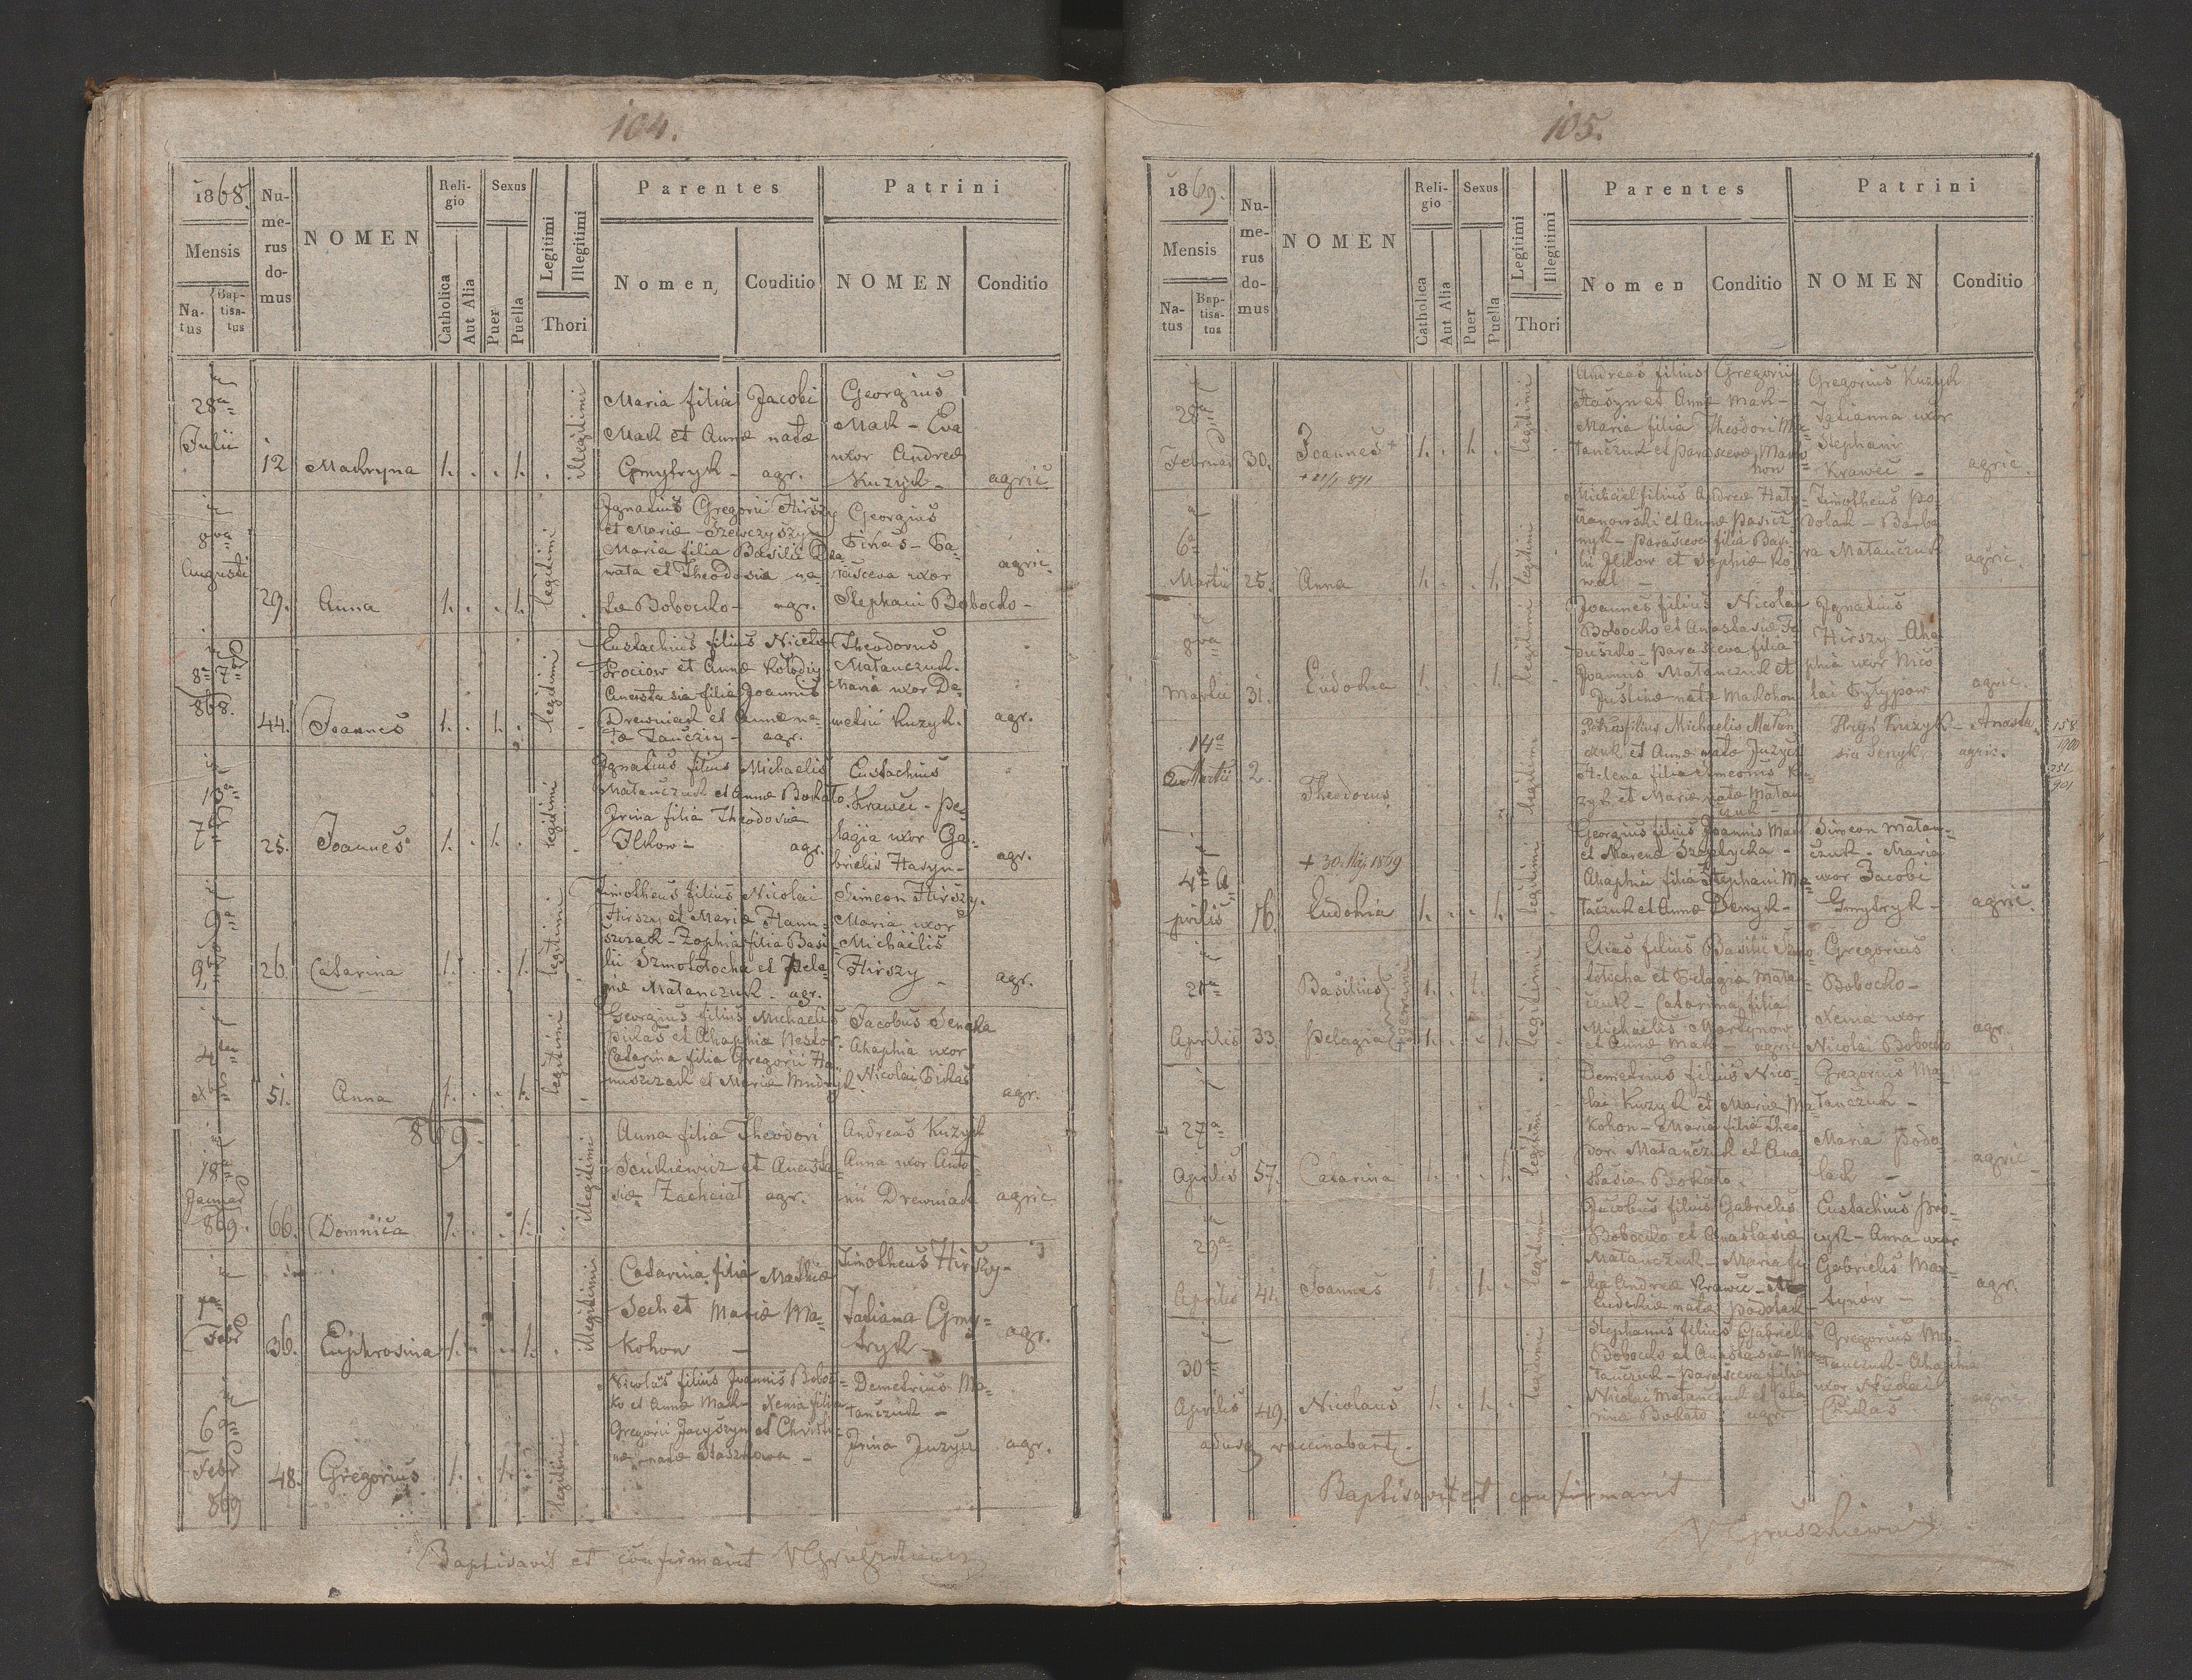 104.
1868.
Mensis
Na-
tus
Bap-
tisa-
tus
Nu-
me-
rus
do-
mus
NOMEN
Reli-
gio
Catholica
Aut Alia
Sexus
Puer
Puella
Legitimi
Illegitimi
Thori
Parentes
Nomen
Conditio
Patrini
NOMEN
Conditio
28a
Julii
12
Makryna
1.
1.
illegitimi
Maria filia Jacobi
Mak et Annæ natæ
Gmytryk - agr.
Georgius
Mak - Eva
uxor Andreæ
Kuzyk -
agric
8va
Augusti
29.
Anna
1.
1.
legitimi
Ignatius Gregorii Hirszy
et Mariæ - Szewczyszyn
Maria filia Basilii
wata et Theodosia na-
tæ Bobocko - agr.
Georgius
uxor
Stephani Bobocko -
agric.
8a 7b
868.
44.
Joannes
1.
1.
legitimi
Eustachius filius Nicolai
Prociow et Annæ Kołodiy
Anastasia filia Joannis
Drewniak et Annæ na-
tæ agr.
Theodorus
Matanczuk.
Maria uxor De-
metrii Kuzyk.
agr.
13a
7b
25.
Joannes
1.
1.
legitimi
Ignatius filius Michaelis
Matanczuk et Annæ Bokato.
Irina filia Theodosia
Ilkow - agr.
Eustachius
Krawec - Pe-
lagia uxor Ga-
brielis Hasyn -
agr.
9a
9b
26.
Catarina
1.
1.
legitimi
Timotheus filius Nicolai
Hirszy et Mariæ Hanu-
szczak - Zophia filia Basi-
lii Szmołocha et Pela-
giæ Matanczuk. agr.
Simeon Hirszy.
Maria uxor
Michaelis
Hirszy -
agr.
4ta
Xbris
51.
Anna
1.
1.
legitimi
Georgius filius Michaelis
Pikas et Ahaphia Nestor.
Catarina filia Gregorii Ha-
nuszczak et Maria
Jacobus Senyka
Ahaphia uxor
Nicolai Pikas
agr.
869
18a
Januar
869.
66.
Domnica
1.
1.
illegitimi
Anna filia Theodori
et Anasta-
siæ Zachciał agr.
Andreas Kuzyk
Anna uxor Anto-
nii Drewniak
agric
1a
Febr
36.
Euphrosina
1.
1.
illegitimi
Catarina filia Mathiæ
Sech et Mariæ Ma-
kohon -
Timotheus Hirszy -
Tatiana Gmy-
tryk -
agr.
6a
Febr
869
48.
Gregorius
1.
1.
legitimi
Nicolaus filius Joannis Boboc-
ko et Annæ Mak - Xenia filia
Gregorii Jacyszyn et Christi-
næ natæ Staszkowa -
Demetrius Ma-
tanczuk -
Irina Juzycz
agr.
Baptisavit et confirmavit VGruszkiewicz
105.
1869.
Mensis
Na-
tus
Bap-
tisa-
tus
Nu-
me-
rus
do-
mus
NOMEN
Reli-
gio
Catholica
Aut Alia
Sexus
Puer
Puella
Legitimi
Illegitimi
Thori
Parentes
Nomen
Conditio
Patrini
NOMEN
Conditio
28a
Februar
30.
Joannes +
1.
1.
legitimi
Andreas filius Gregorii
Hasyn et Annæ Mak -
Maria filia Theodori Ma-
tanczuk et Parascevæ Mako-
hon
Gregorius Kuzyk
Tatianna uxor
Stephani
Krawec -
agric.
6a
Martii
25.
Anna
1.
1.
legitimi
Michael filius Andreæ
et Annæ
- Parasceva filia Basi-
lii Ilkow et Sophiæ Ko-
wal -
Timotheus Po-
dolak - Barba-
ra Matanczuk
agric.
8va
Martii
31.
Eudokia
1.
1.
legitimi
Joannes filius Nicolai
Bobocko et Anastasiæ
- Parasceva filia
Joannis Matanczuk et
Justinæ natæ Makohon
Ignatius
Hirszy - Aha-
phia uxor Nico-
lai Fylypow
agric.
14a
Martii
2.
Theodorus
legitimi
Petrus filius Michaelis Matan-
czuk et Annæ natæ Juzycz
Helena filia Simeonis Ku-
zyk et Mariæ natæ Matan-
czuk -
Hryń Kuzyk - Anasta-
sia Senyk
agric.
158
1900
+ 30. Maj 1869
4a A-
prilis
16.
Eudokia
1.
1.
legitimi
Georgius filius Joannis Mak
et Marenæ Szeptycka -
Ahaphia filia Stephani Ma-
taczuk et Annæ Denyk -
Simeon Matan-
czuk. Maria
uxor Jacobi
Gmytryk -
agric.
21a
Aprilis
33.
Basilius
Pelagia
gemini
1.
1.
1.
1.
legitimi
Elias filius Basilii Szmo-
łocha et Pelagia Matan-
czuk - Catarina filia
Michaelis Martynow
et Annæ Mak - agric
Gregorius
Bobocko -
Xenia uxor
Nicolai Bobocko
agr.
27a
Aprilis
57.
Catarina
1.
1.
legitimi
Demetrius filius Nico-
lai Kuzyk et Mariæ Ma-
kohon - Maria filia Theo-
dori Matanczuk et Ana-
stasia Bokato.
Gregorius Ma-
tanczuk -
Maria Podo-
lak -
agric
29a
Aprilis
41.
Joannes
1.
1.
legitimi
Jacobus filius Gabrielis
Bobocko et Anastasiæ
Matanczuk - Maria fi-
lia Andreæ Krawec -
Eudokiæ natæ Podolak -
Eustachius Pro-
cyk - Anna uxor
Gabrielis Mar-
tynow -
agr.
30a
Aprilis
49.
Nicolaus
1.
1.
legitimi
Stephanus filius Gabrielis
Bobocko et Anastasiæ Ma-
tanczuk - Parasceva filia
Nicolai Matanczuk et Cata-
rina Bokato - agr.
Gregorius Ma-
tanczuk - Ahaphia
uxor Nicolai
Pikas
agric.
Baptisavit et confirmavit
VGruszkiewicz